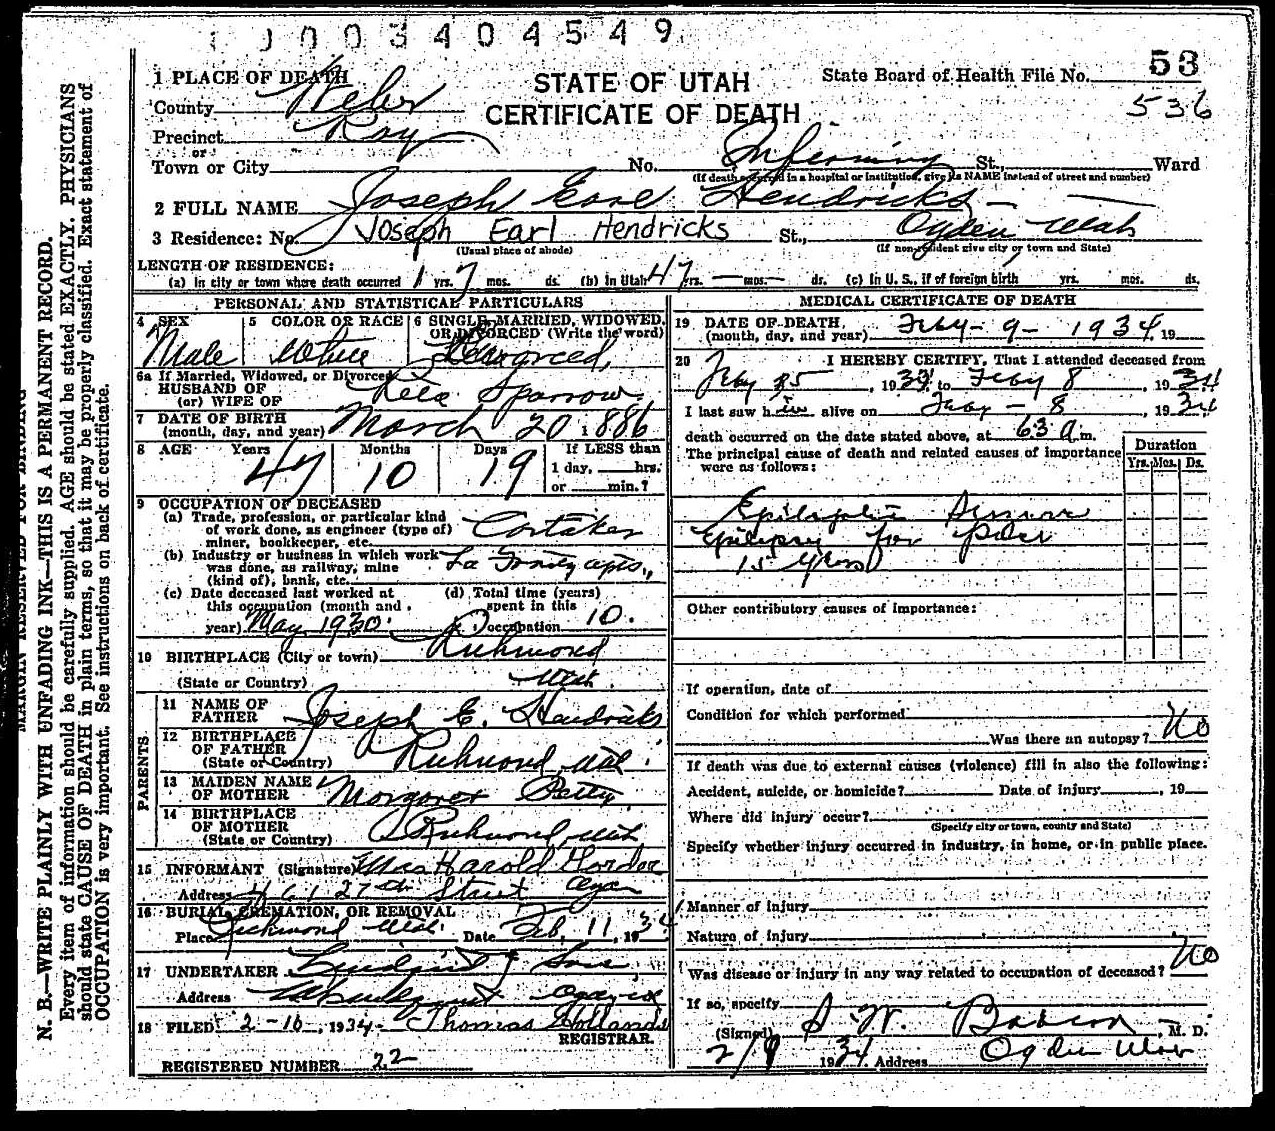 1 0 0 0 3 4 0 4 5 4 9
53
536
STATE OF UTAH
CERTIFICATE OF DEATH
State Board of Health File No.
1 PLACE OF DEATH
County Weber
Precinct Roy
or
Town or City No. Infirmary St. Ward
(If death occurred in a hospital or institution, give its NAME instead of street and number)
2 FULL NAME Joseph Earl Hendricks
3 Residence: No. Joseph Earl Hendricks St., Ogden Utah
(Usual place of abode) (If non-resident give city or town and State)
LENGTH OF RESIDENCE:
(a) in city or town where death occurred 1 yrs. 7 mos. ds. (b) in Utah 47 yrs. — mos. — ds. (c) In U. S., if of foreign birth yrs. mos. ds.
PERSONAL AND STATISTICAL PARTICULARS
4 SEX Male
5 COLOR OR RACE White
6 SINGLE, MARRIED, WIDOWED, OR DIVORCED (Write the word) Divorced,
6a If Married, Widowed, or Divorced
HUSBAND OF
(or) WIFE OF Sparrow
7 DATE OF BIRTH
(month, day, and year) March 20 1886
8 AGE Years 47 Months 10 Days 19
If LESS than
1 day, hrs.
or min.?
9 OCCUPATION OF DECEASED
(a) Trade, profession, or particular kind
of work done, as engineer (type of)
miner, bookkeeper, etc.
(b) Industry or business in which work
was done, as railway, mine
(kind of), bank, etc. apts.,
(c) Date deceased last worked at
this occupation (month and
year) May 1930
(d) Total time (years)
spent in this
occupation 10.
10 BIRTHPLACE (City or town) Richmond
(State or Country) Utah.
PARENTS
11 NAME OF
FATHER Joseph E. Hendricks
12 BIRTHPLACE
OF FATHER
(State or Country) Richmond, Utah
13 MAIDEN NAME
OF MOTHER Margaret Petty
14 BIRTHPLACE
OF MOTHER
(State or Country) Richmond, Utah
15 INFORMANT (Signature) Mrs Harold
Address 461 27th Street Ogden
16 BURIAL, CREMATION, OR REMOVAL
Place Richmond Utah. Date Feb. 11, 1934
17 UNDERTAKER Lindquist & Sons
Address
18 FILED 2-10, 1934 Thomas Hollands
REGISTRAR.
REGISTERED NUMBER 22
MEDICAL CERTIFICATE OF DEATH
19 DATE OF DEATH,
(month, day, and year) Feby - 9 - 1934, 19
20 I HEREBY CERTIFY, That I attended deceased from
Feby 5, 1934, to Feby 8, 1934
I last saw him alive on Feby - 8, 1934
death occurred on the date stated above, at 630 a.m.
The principal cause of death and related causes of importance
were as follows:
Duration
Yrs. Mos. Ds.
Epileptic Seizure
Epilepsy for past
15 years
Other contributory causes of importance:
If operation, date of
Condition for which performed
Was there an autopsy? No
If death was due to external causes (violence) fill in also the following:
Accident, suicide, or homicide? Date of injury, 19
Where did injury occur?
(Specify city or town, county and State)
Specify whether injury occurred in industry, in home, or in public place.
Manner of injury
Nature of injury
Was disease or injury in any way related to occupation of deceased? No
If so, specify
(Signed) , M. D.
2/9 1934 Address Ogden Utah
MARGIN RESERVED FOR BINDING
N. B.—WRITE PLAINLY WITH UNFADING INK—THIS IS A PERMANENT RECORD.
Every item of information should be carefully supplied. AGE should be stated EXACTLY. PHYSICIANS
should state CAUSE OF DEATH in plain terms, so that it may be properly classified. Exact statement of
OCCUPATION is very important. See instructions on back of certificate.